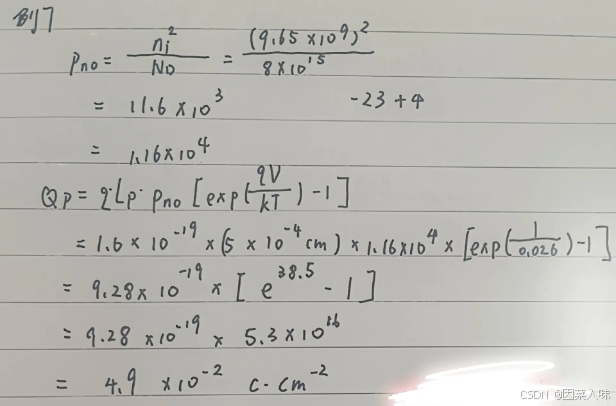 例7
Pno = ni² / ND = (9.65 × 10⁹)² / 8 × 10¹⁵
= 11.6 × 10³ -23 + 4
= 1.16 × 10⁴
Qp = q · Lp · Pno [exp(qV / kT) - 1]
= 1.6 × 10⁻¹⁹ × (5 × 10⁻⁴ cm) × 1.16 × 10⁴ × [exp(1 / 0.026) - 1]
= 9.28 × 10⁻¹⁹ × [e³⁸·⁵ - 1]
= 9.28 × 10⁻¹⁹ × 5.3 × 10¹⁶
= 4.9 × 10⁻² C · cm⁻²
CSDN @因菜入味